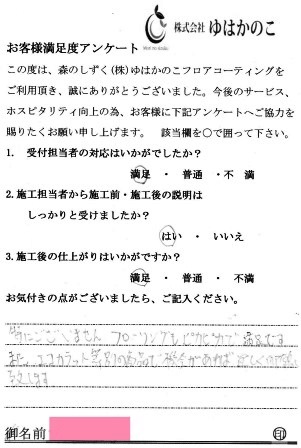 株式会社 ゆはかのこ
お客様満足度アンケート
この度は、森のしずく(株)ゆはかのこフロアコーティングを
ご利用頂き、誠にありがとうございました。今後のサービス、
ホスピタリティ向上の為、お客様に下記アンケートへご協力を
賜りたくお願い申し上げます。 該当欄を○で囲って下さい。
1. 受付担当者の対応はいかがでしたか?
満足 ・ 普通 ・不 満
2.施工担当者から施工前・施工後の説明は
しっかりと受けましたか?
はい ・ いいえ
3.施工後の仕上がりはいかがですか?
満足 ・ 普通 ・ 不満
お気付きの点がございましたら、ご記入ください。
特にございません フローリングもピカピカで 満足です
また、エコカラット 等別の商品で 機会があれば 宜しくお願い
致します
御名前
印